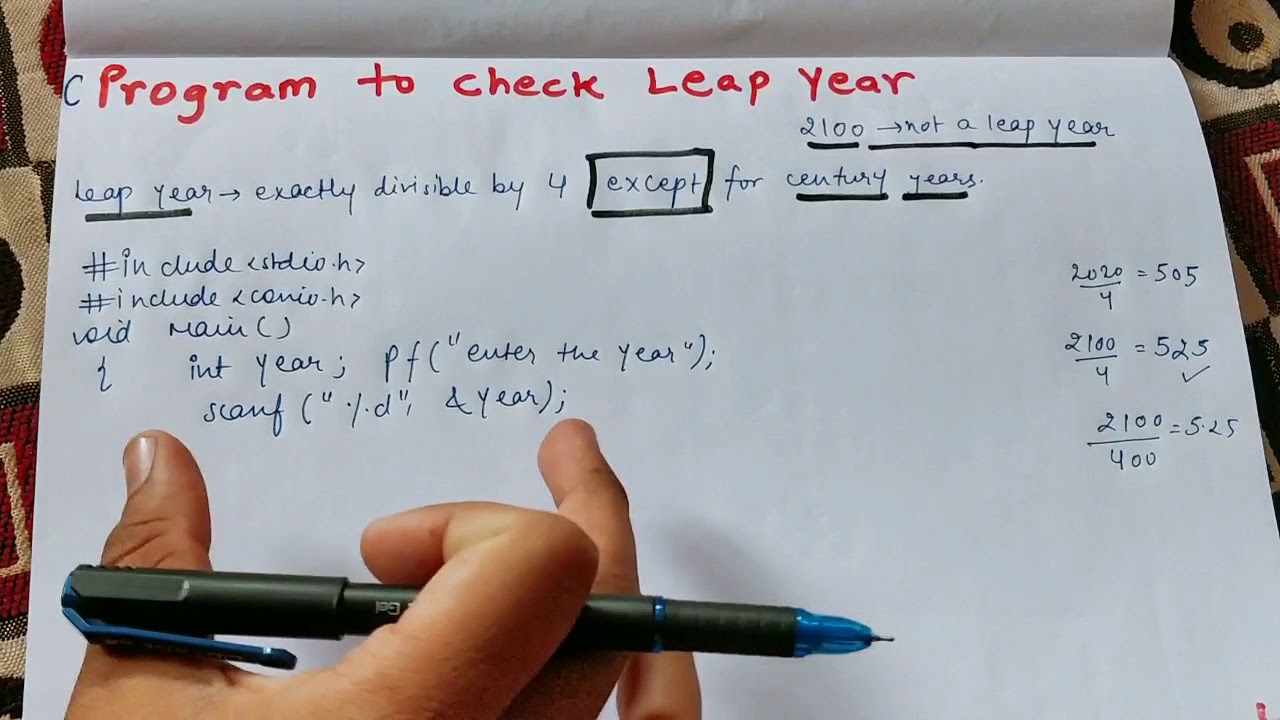 C Program to check Leap Year
2100 → not a leap year
Leap year → exactly divisible by 4 except for century years.
#include <stdio.h>
#include <conio.h>
void main()
{ int year; pf("enter the year");
scanf ("%d", &year);
2020/4 = 505
2100/4 = 525 ✓
2100/400 = 5.25
Gel